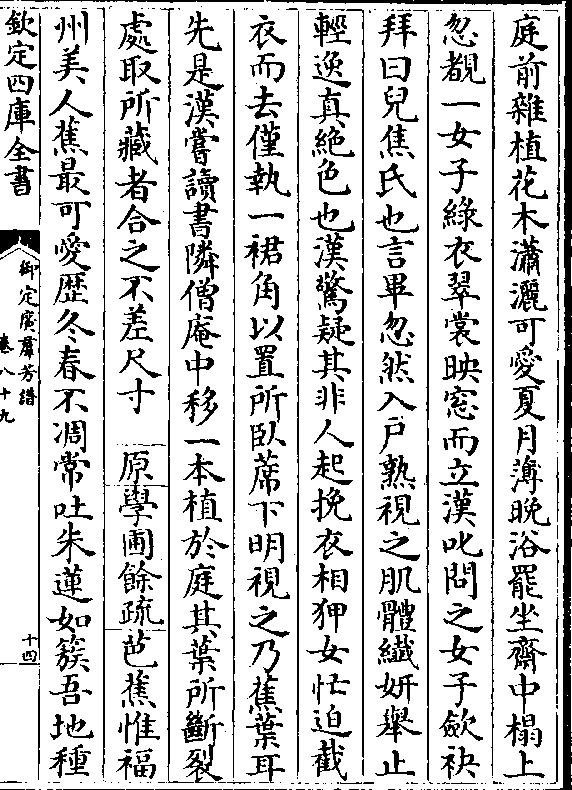 庭前雜植花木瀟灑可愛夏月薄晚浴罷坐齋中榻上
忽覩一女子綠衣翠裳映窓而立漢叱問之女子歛袂
拜曰兒焦氏也言畢忽然入戶熟視之肌體纎妍舉止
輕逸真絕色也漢驚疑其非人起挽衣相狎女忙迫截
衣而去僅執一裙角以置所臥蓆下明視之乃蕉葉耳
先是漢嘗讀書隣僧庵中移一本植於庭其葉所斷裂
處取所藏者合之不差尺寸　原學圃餘疏芭蕉惟福
州美人蕉最可愛歴冬春不凋常吐朱蓮如簇吾地種
欽定四庫全書
御定廣羣芳譜
卷八十九
十四